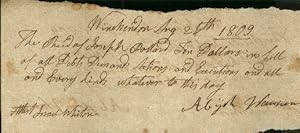 Winchendon Aug 28th 1809
The Recd of Joseph Ten Dollars in full
of all Debts Demand Notions and Executions and all
and Every kinds whatever to this day
Attest Israel Whiton Abijah